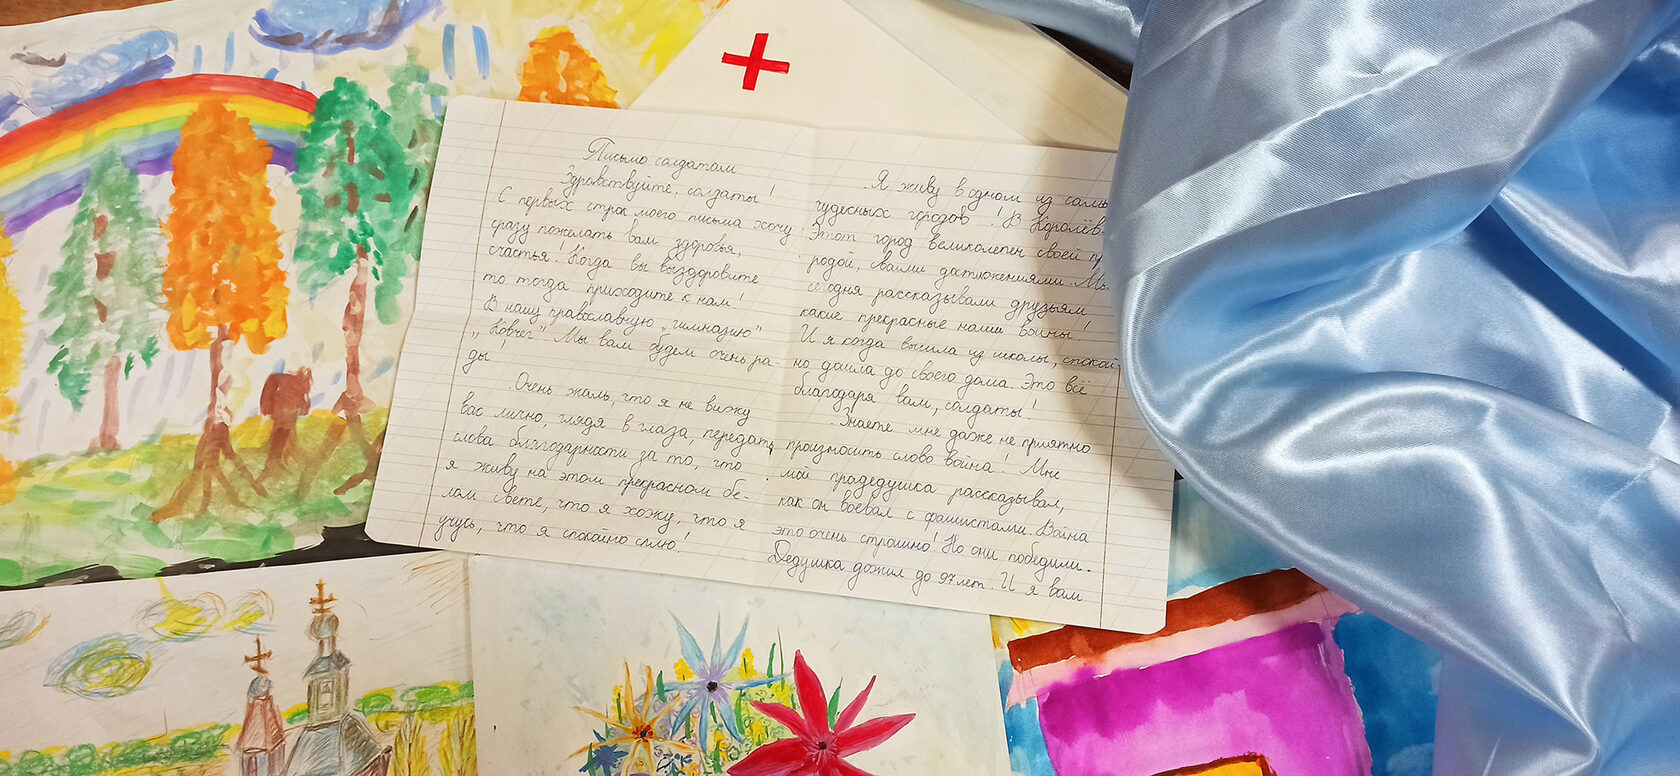 Письмо солдатам
Здравствуйте, солдаты!
С первых строк моего письма хочу
сразу пожелать вам здоровья,
счастья! Когда вы выздоровите
то тогда приходите к нам!
В нашу православную „гимназию"
„Ковчег" Мы вам будем очень ра-
ды!
Очень жаль, что я не вижу
вас лично, глядя в глаза, передать
слова благодарности за то, что
я живу на этом прекрасном бе-
лом свете, что я хожу, что я
учусь, что я спокойно сплю!
Я живу в одном из самы
чудесных городов! В Королёв
Этот город великолепен своей пр
родой, своими достижениями. Мы
сегодня рассказывали друзьям
какие прекрасные наши воины!
И я когда вышла из школы, спокой
но дошла до своего дома. Это всё
благодаря вам, солдаты!
Знаете мне даже не приятно
произносить слово война! Мне
мой прадедушка рассказывал,
как он воевал с фашистами. Война
это очень страшно! Но они победили.
Дедушка дожил до 97 лет. И я вам